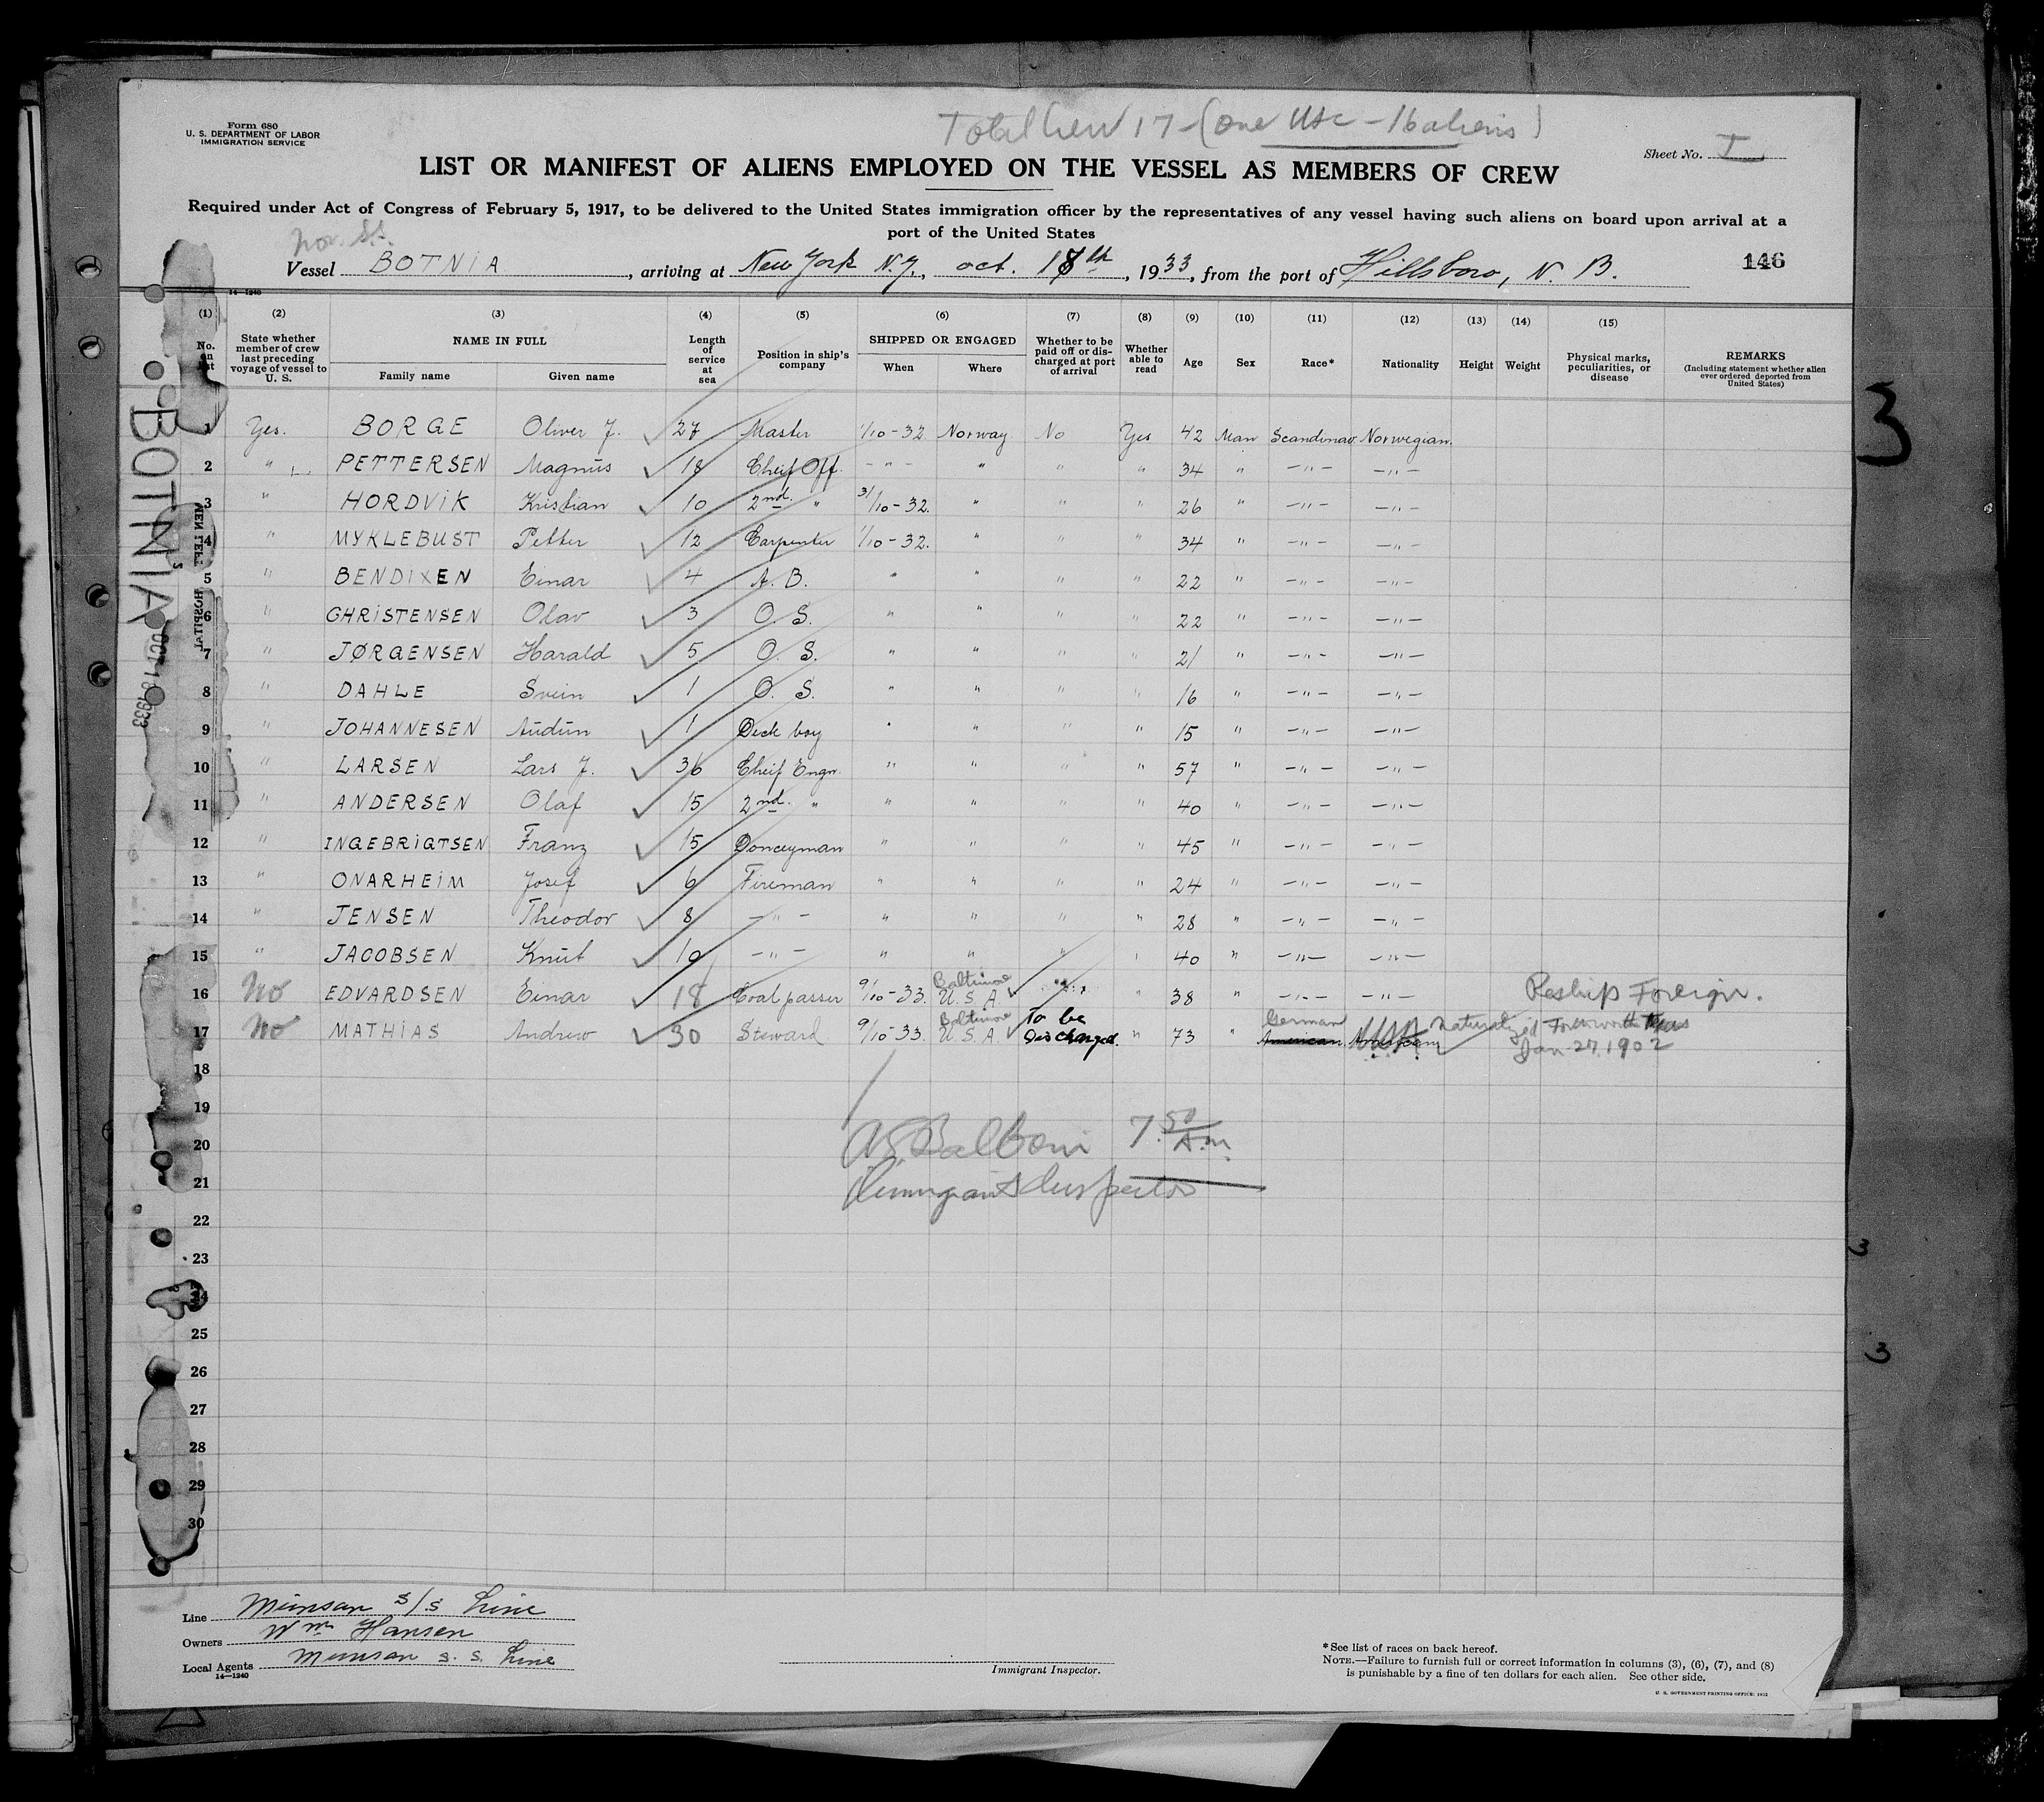 Total Crew 17 - (one USC - 16 aliens)
Form 680
U. S. DEPARTMENT OF LABOR
IMMIGRATION SERVICE
Sheet No. I
LIST OR MANIFEST OF ALIENS EMPLOYED ON THE VESSEL AS MEMBERS OF CREW
Required under Act of Congress of February 5, 1917, to be delivered to the United States immigration officer by the representatives of any vessel having such aliens on board upon arrival at a
port of the United States
Nor. S.S.
Vessel BOTNIA, arriving at New York N.Y., oct. 18th, 1933, from the port of Hillsboro, N. B.
146
14—1240
(1) (2) (3) (4) (5) (6) (7) (8) (9) (10) (11) (12) (13) (14) (15)
No. on
State whether member of crew last preceding voyage of vessel to U. S.
NAME IN FULL
Family name Given name
Length of service at sea
Position in ship's company
SHIPPED OR ENGAGED
When Where
Whether to be paid off or discharged at port of arrival
Whether able to read
Age Sex Race* Nationality Height Weight
Physical marks, peculiarities, or disease
REMARKS
(Including statement whether alien ever ordered deported from United States)
1 Yes. BORGE Oliver J. 27 Master 1/10-32 Norway No Yes 42 Man Scandinav. Norwegian.
2 " PETTERSEN Magnus 18 Cheif Off. -"- " " " 34 " -"- -"-
3 " HORDVIK Kristian 10 2nd. " 31/10-32. " " " 26 " -"- -"-
4 " MYKLEBUST Petter 12 Carpenter 1/10-32. " " " 34 " -"- -"-
5 " BENDIXEN Einar 4 A. B. " " " " 22 " -"- -"-
6 " CHRISTENSEN Olav 3 O. S. " " " " 22 " -"- -"-
7 " JØRGENSEN Harald 5 O. S. " " " " 21 " -"- -"-
8 " DAHLE Svein 1 O. S. " " " " 16 " -"- -"-
9 " JOHANNESEN Audun 1 Deck boy " " " " 15 " -"- -"-
10 " LARSEN Lars J. 36 Cheif Engr. " " " " 57 " -"- -"-
11 " ANDERSEN Olaf 15 2nd. " " " " " 40 " -"- -"-
12 " INGEBRIGTSEN Franz 15 Donceyman " " " " 45 " -"- -"-
13 " ONARHEIM Josef 6 Fireman " " " " 24 " -"- -"-
14 " JENSEN Theodor 8 -"- " " " " 28 " -"- -"-
15 " JACOBSEN Knut 10 -"- " " " " 40 " -"- -"-
16 No EDVARDSEN Einar 18 Coal passer 9/10-33. Baltimore U. S. A. " " 38 " -"- -"- Reship Foreign.
17 No MATHIAS Andrew 30 Steward 9/10-33. Baltimore U. S. A. To be Discharged. " 73 " German American USA Naturalized Fortworth Texas
Jan-27.1902
18
19
20
21
22
23
24
25
26
27
28
29
30
7.50 A.m.
Immigrant Inspector
BOTNIA
MEN LEFT HOSPITAL
OCT 18 1933
3
3
3
Line Munson S/S Line
Owners Wm Hansen
Local Agents Munson S. S. Line
14—1240
Immigrant Inspector.
*See list of races on back hereof.
NOTE.—Failure to furnish full or correct information in columns (3), (6), (7), and (8)
is punishable by a fine of ten dollars for each alien. See other side.
U. S. GOVERNMENT PRINTING OFFICE: 1932